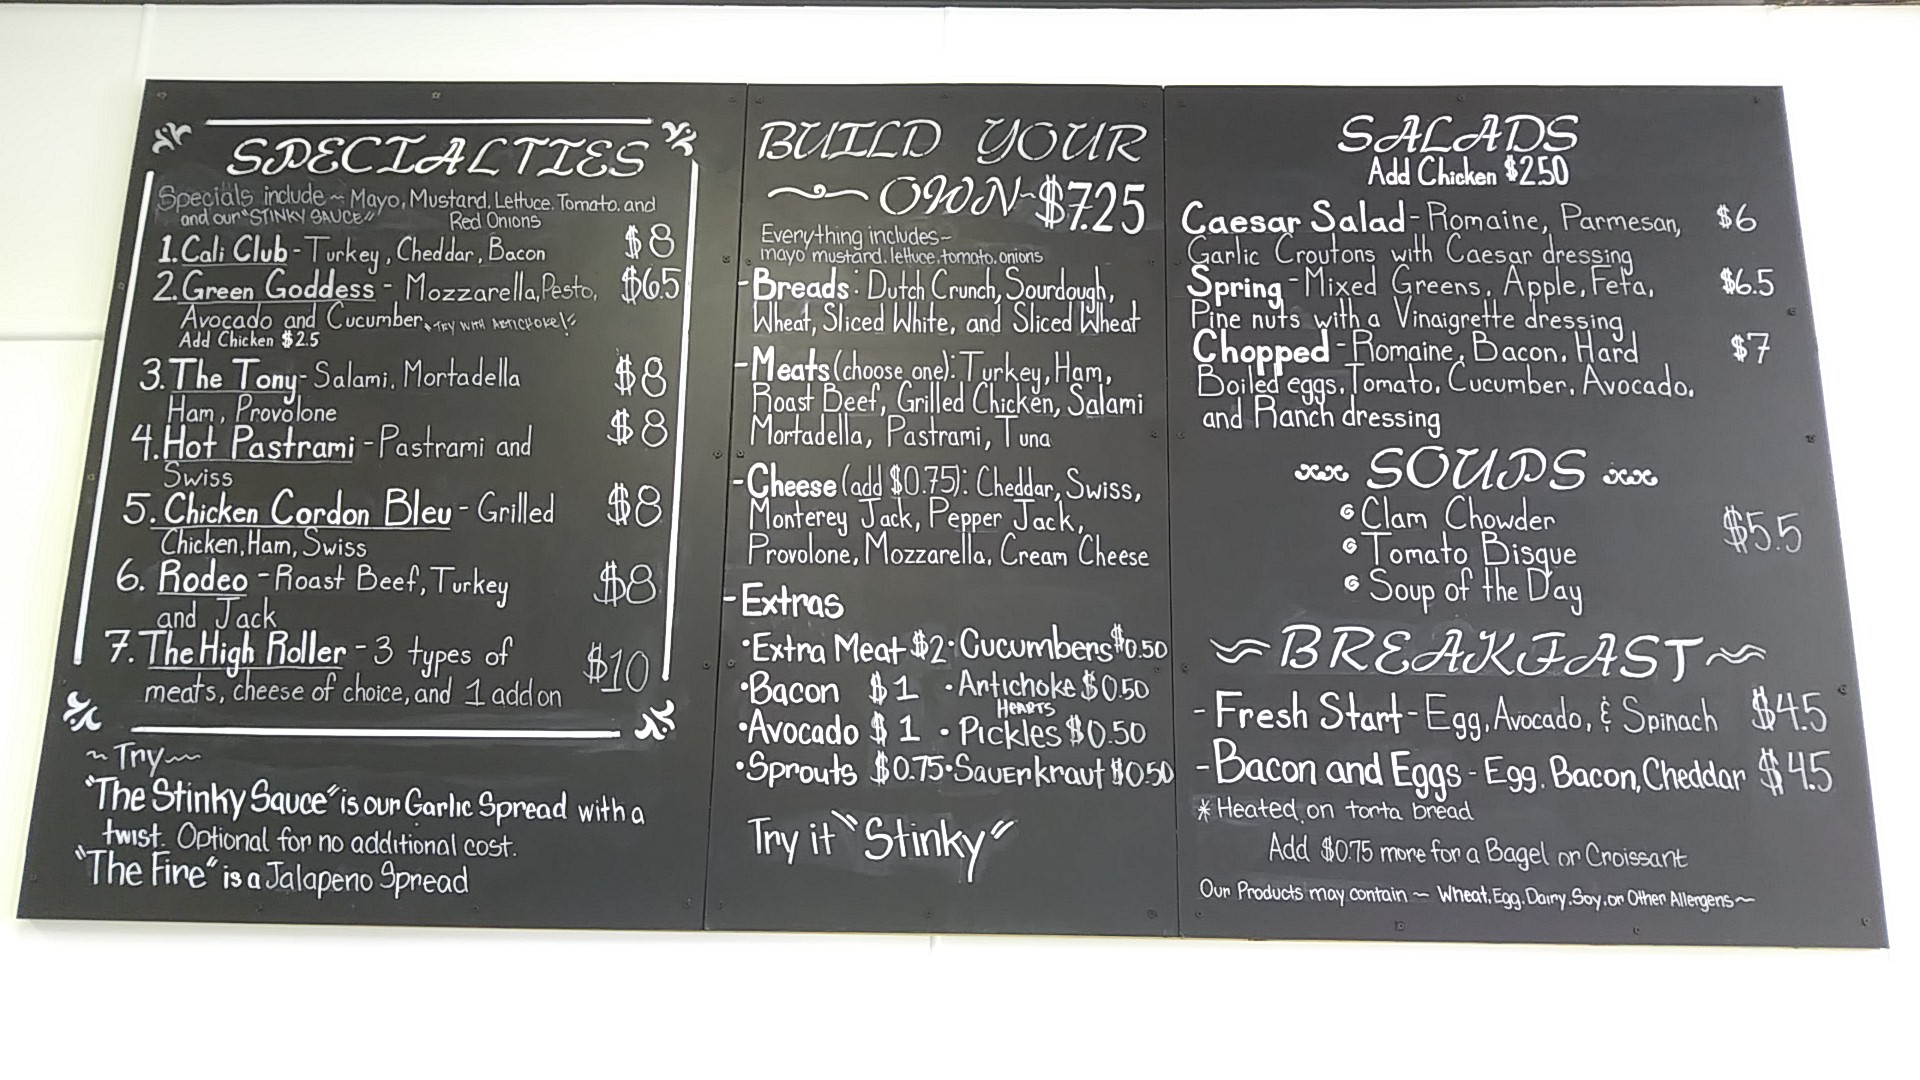 SPECIALTIES
Specials include ~ Mayo, Mustard, Lettuce, Tomato, and
and our "STINKY SAUCE" Red Onions
1. Cali Club - Turkey, Cheddar, Bacon $8
2. Green Goddess - Mozzarella, Pesto, $6.5
Avocado and Cucumber *TRY WITH ARTICHOKE!*
Add Chicken $2.5
3. The Tony - Salami, Mortadella $8
Ham, Provolone
4. Hot Pastrami - Pastrami and $8
Swiss
5. Chicken Cordon Bleu - Grilled $8
Chicken, Ham, Swiss
6. Rodeo - Roast Beef, Turkey $8
and Jack
7. The High Roller - 3 types of $10
meats, cheese of choice, and 1 add on
~Try~
"The Stinky Sauce" is our Garlic Spread with a
twist. Optional for no additional cost.
"The Fire" is a Jalapeno Spread
BUILD YOUR
OWN ~ $7.25
Everything includes -
mayo mustard, lettuce, tomato, onions
- Breads: Dutch Crunch, Sourdough,
Wheat, Sliced White, and Sliced Wheat
- Meats (choose one): Turkey, Ham,
Roast Beef, Grilled Chicken, Salami
Mortadella, Pastrami, Tuna
- Cheese (add $0.75): Cheddar, Swiss,
Monterey Jack, Pepper Jack,
Provolone, Mozzarella, Cream Cheese
- Extras
• Extra Meat $2 • Cucumbers $0.50
• Bacon $1 • Artichoke $0.50
HEARTS
• Avocado $1 • Pickles $0.50
• Sprouts $0.75 • Sauerkraut $0.50
Try it "Stinky"
SALADS
Add Chicken $2.50
Caesar Salad - Romaine, Parmesan, $6
Garlic Croutons with Caesar dressing
Spring - Mixed Greens, Apple, Feta, $6.5
Pine nuts with a Vinaigrette dressing
Chopped - Romaine, Bacon, Hard $7
Boiled eggs, Tomato, Cucumber, Avocado,
and Ranch dressing
SOUPS
Clam Chowder
Tomato Bisque $5.5
Soup of the Day
BREAKFAST
- Fresh Start - Egg, Avocado, & Spinach $4.5
- Bacon and Eggs - Egg, Bacon, Cheddar $4.5
* Heated on torta bread
Add $0.75 more for a Bagel or Croissant
Our Products may contain ~ Wheat, Egg, Dairy, Soy, or Other Allergens ~